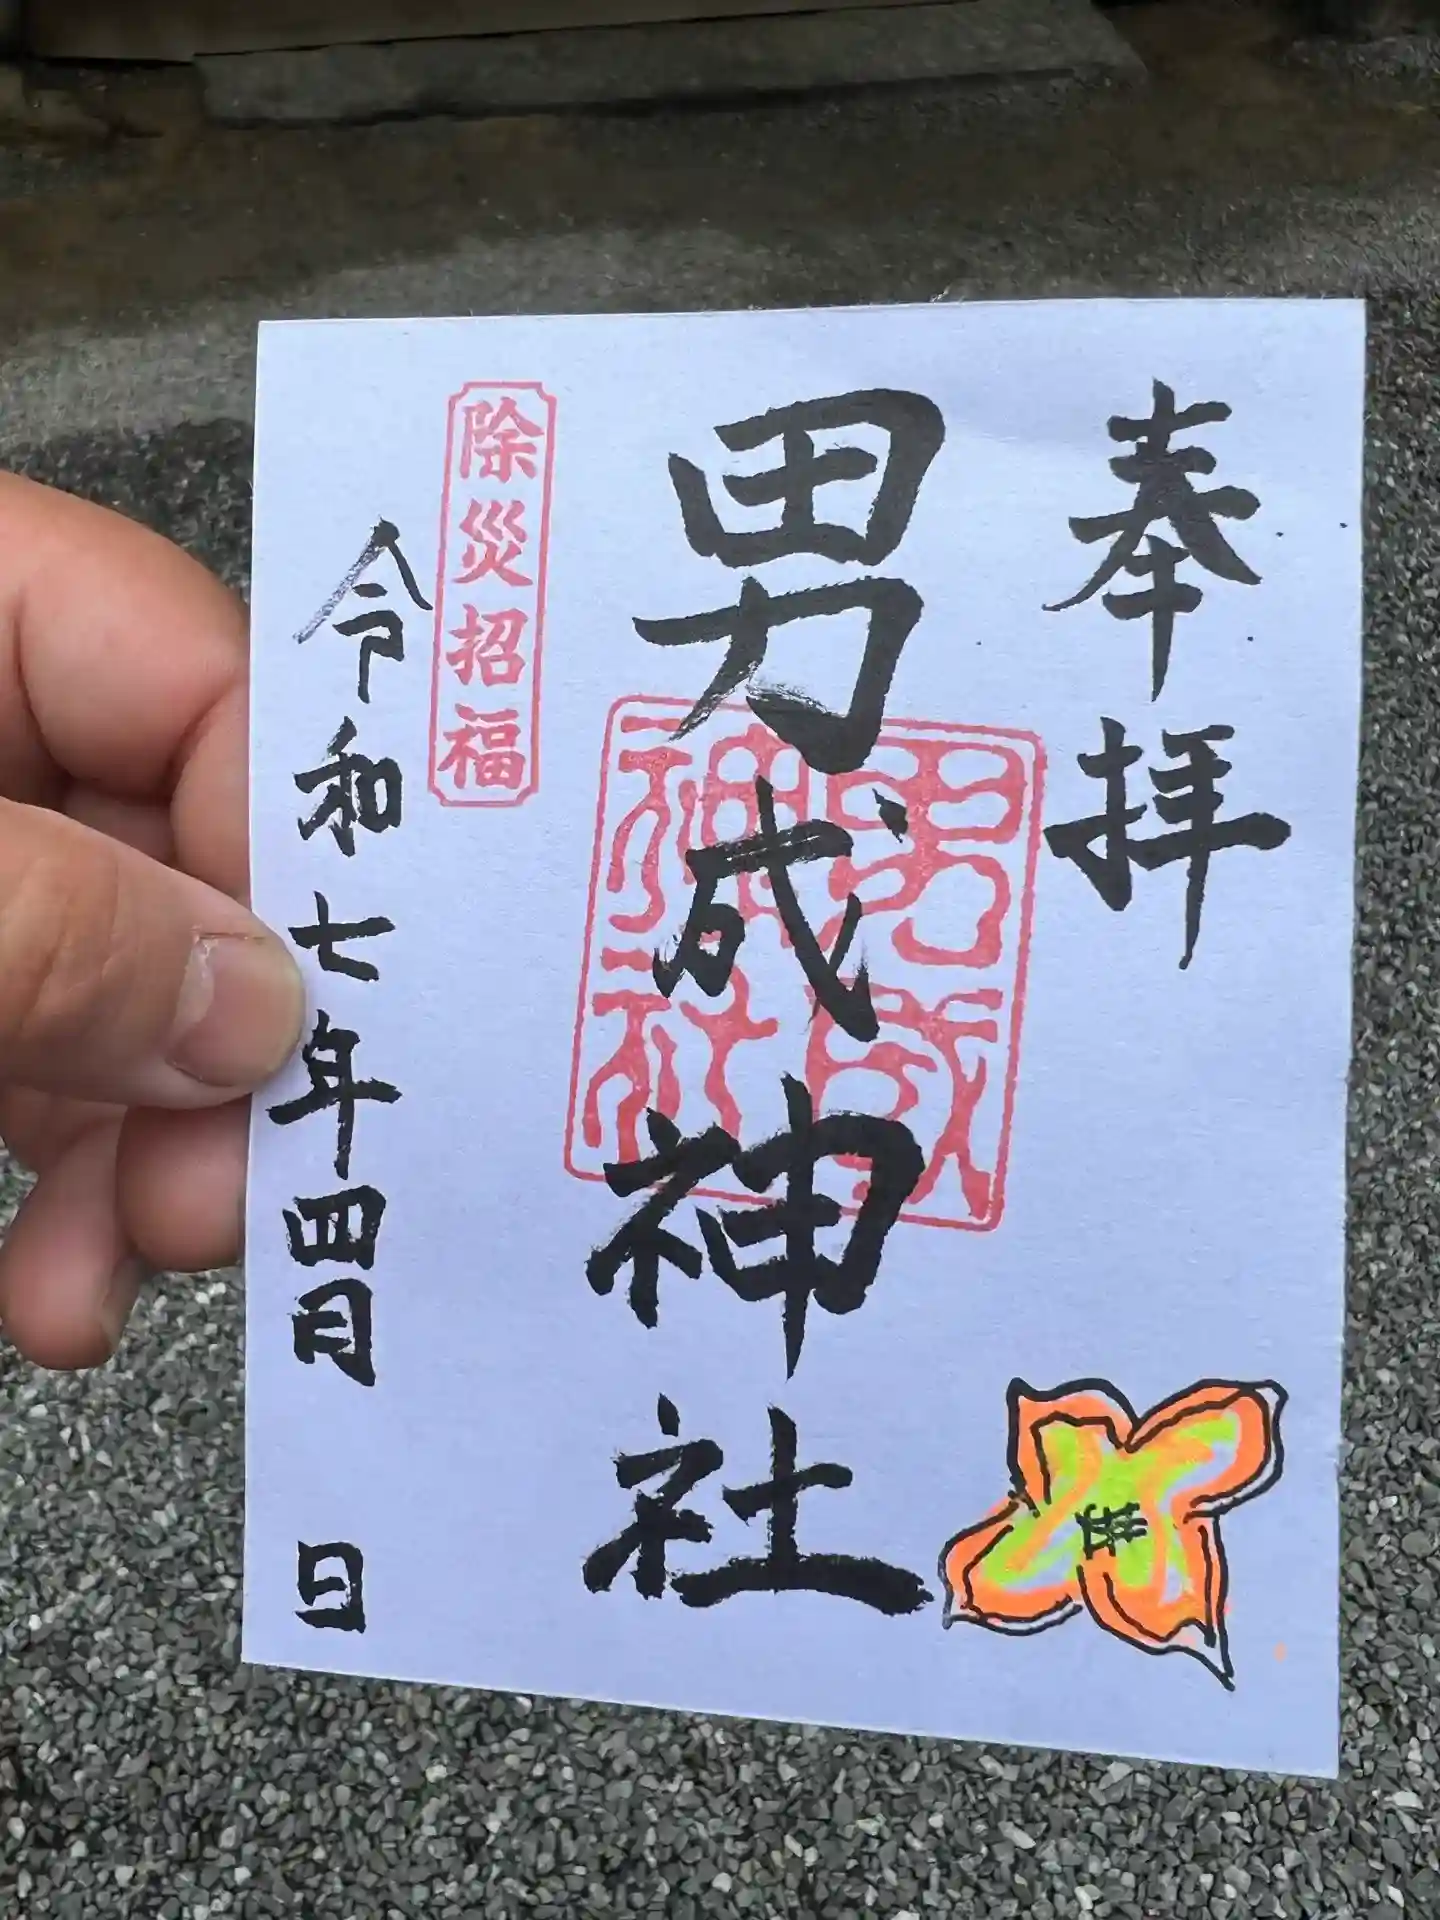 奉拝
男成神社
男成神社
除災招福
令和七年四月 日